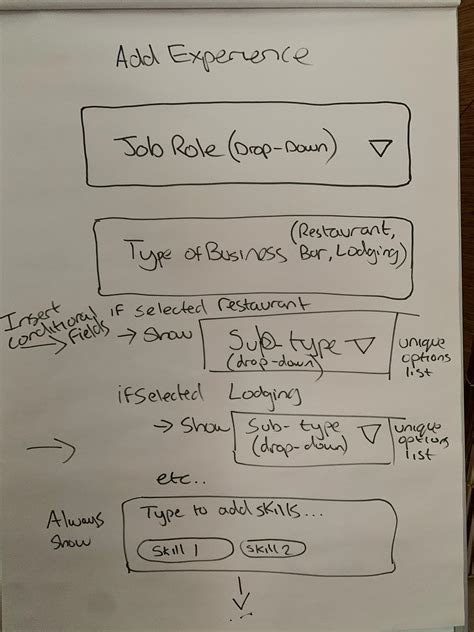 Add Experience
Job Role (Drop-Down)
Type of Business (Restaurant, Bar, Lodging)
Insert conditional fields
if selected restaurant
→ Show
Sub-type
(drop-down)
unique options list
if Selected Lodging
→ Show
Sub-type
(drop-down)
unique options list
etc..
Always Show
Type to add skills...
Skill 1
Skill 2
...